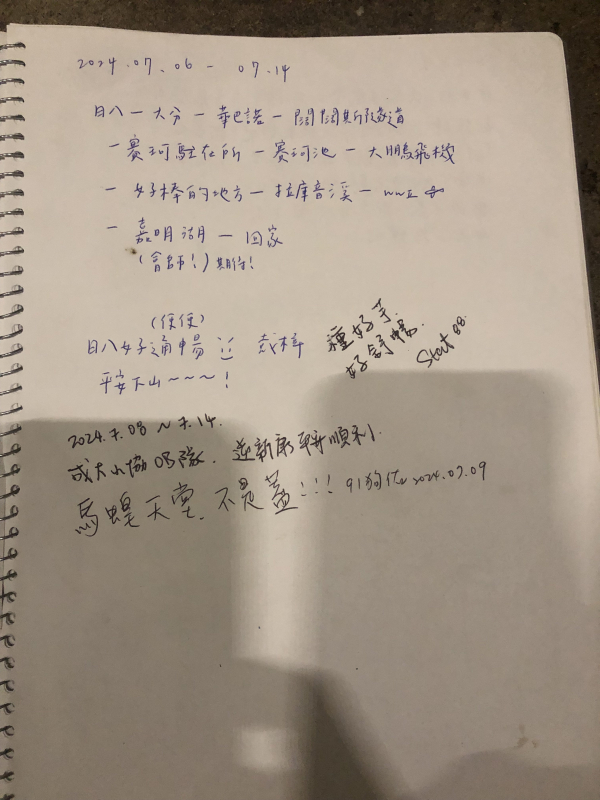 2024.07.06 - 07.14
日八 - 大分 - 華巴諾 - 闊闊斯隧道
- 賽珂駐在所 - 賽珂池 - 大鵬飛機
- 好棒的地方 - 拉庫音溪 -
- 嘉明湖 - 回家
(會師!) 期待!
(便便)
日八好通暢
平安下山~~~!
種好手
好舒暢.
Start 08.
2024.7.08 ~ 7.14.
成大山協OB隊. 逆新康 平安順利.
馬蝗天堂. 不是蓋!!! 91 2024.07.09